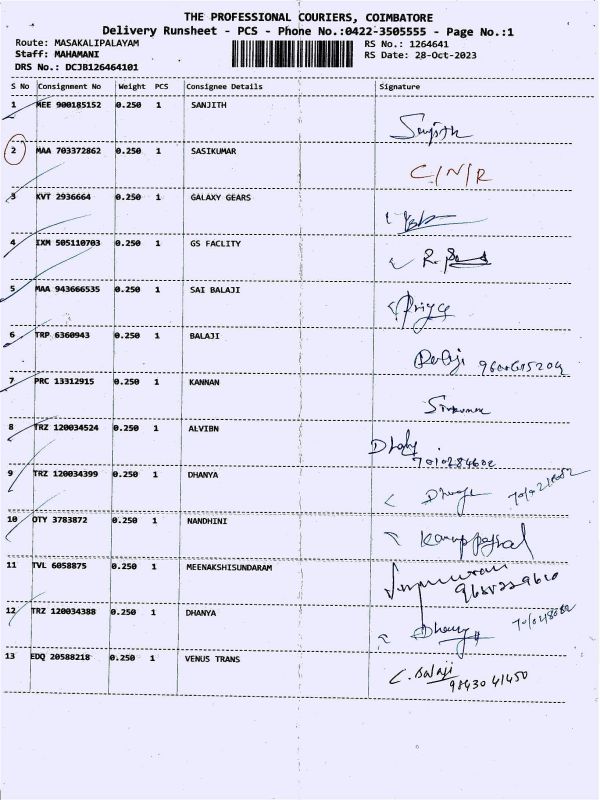 THE PROFESSIONAL COURIERS, COIMBATORE
Delivery Runsheet - PCS - Phone No.:0422-3505555 - Page No.:1
Route: MASAKALIPALAYAM RS No.: 1264641
Staff: MAHAMANI RS Date: 28-Oct-2023
DRS No.: DCJB126464101
S No Consignment No Weight PCS Consignee Details Signature
1 MEE 900185152 0.250 1 SANJITH Sanjith
2 MAA 703372862 0.250 1 SASIKUMAR C/N/R
3 KVT 2936664 0.250 1 GALAXY GEARS
4 IXM 505110703 0.250 1 GS FACLITY
5 MAA 943666535 0.250 1 SAI BALAJI Priya
6 TRP 6360943 0.250 1 BALAJI Balaji
7 PRC 13312915 0.250 1 KANNAN
8 TRZ 120034524 0.250 1 ALVIBN
9 TRZ 120034399 0.250 1 DHANYA
10 OTY 3783872 0.250 1 NANDHINI
11 TVL 6058875 0.250 1 MEENAKSHISUNDARAM
12 TRZ 120034388 0.250 1 DHANYA
13 EDQ 20588218 0.250 1 VENUS TRANS C. Balaji
98430 41450